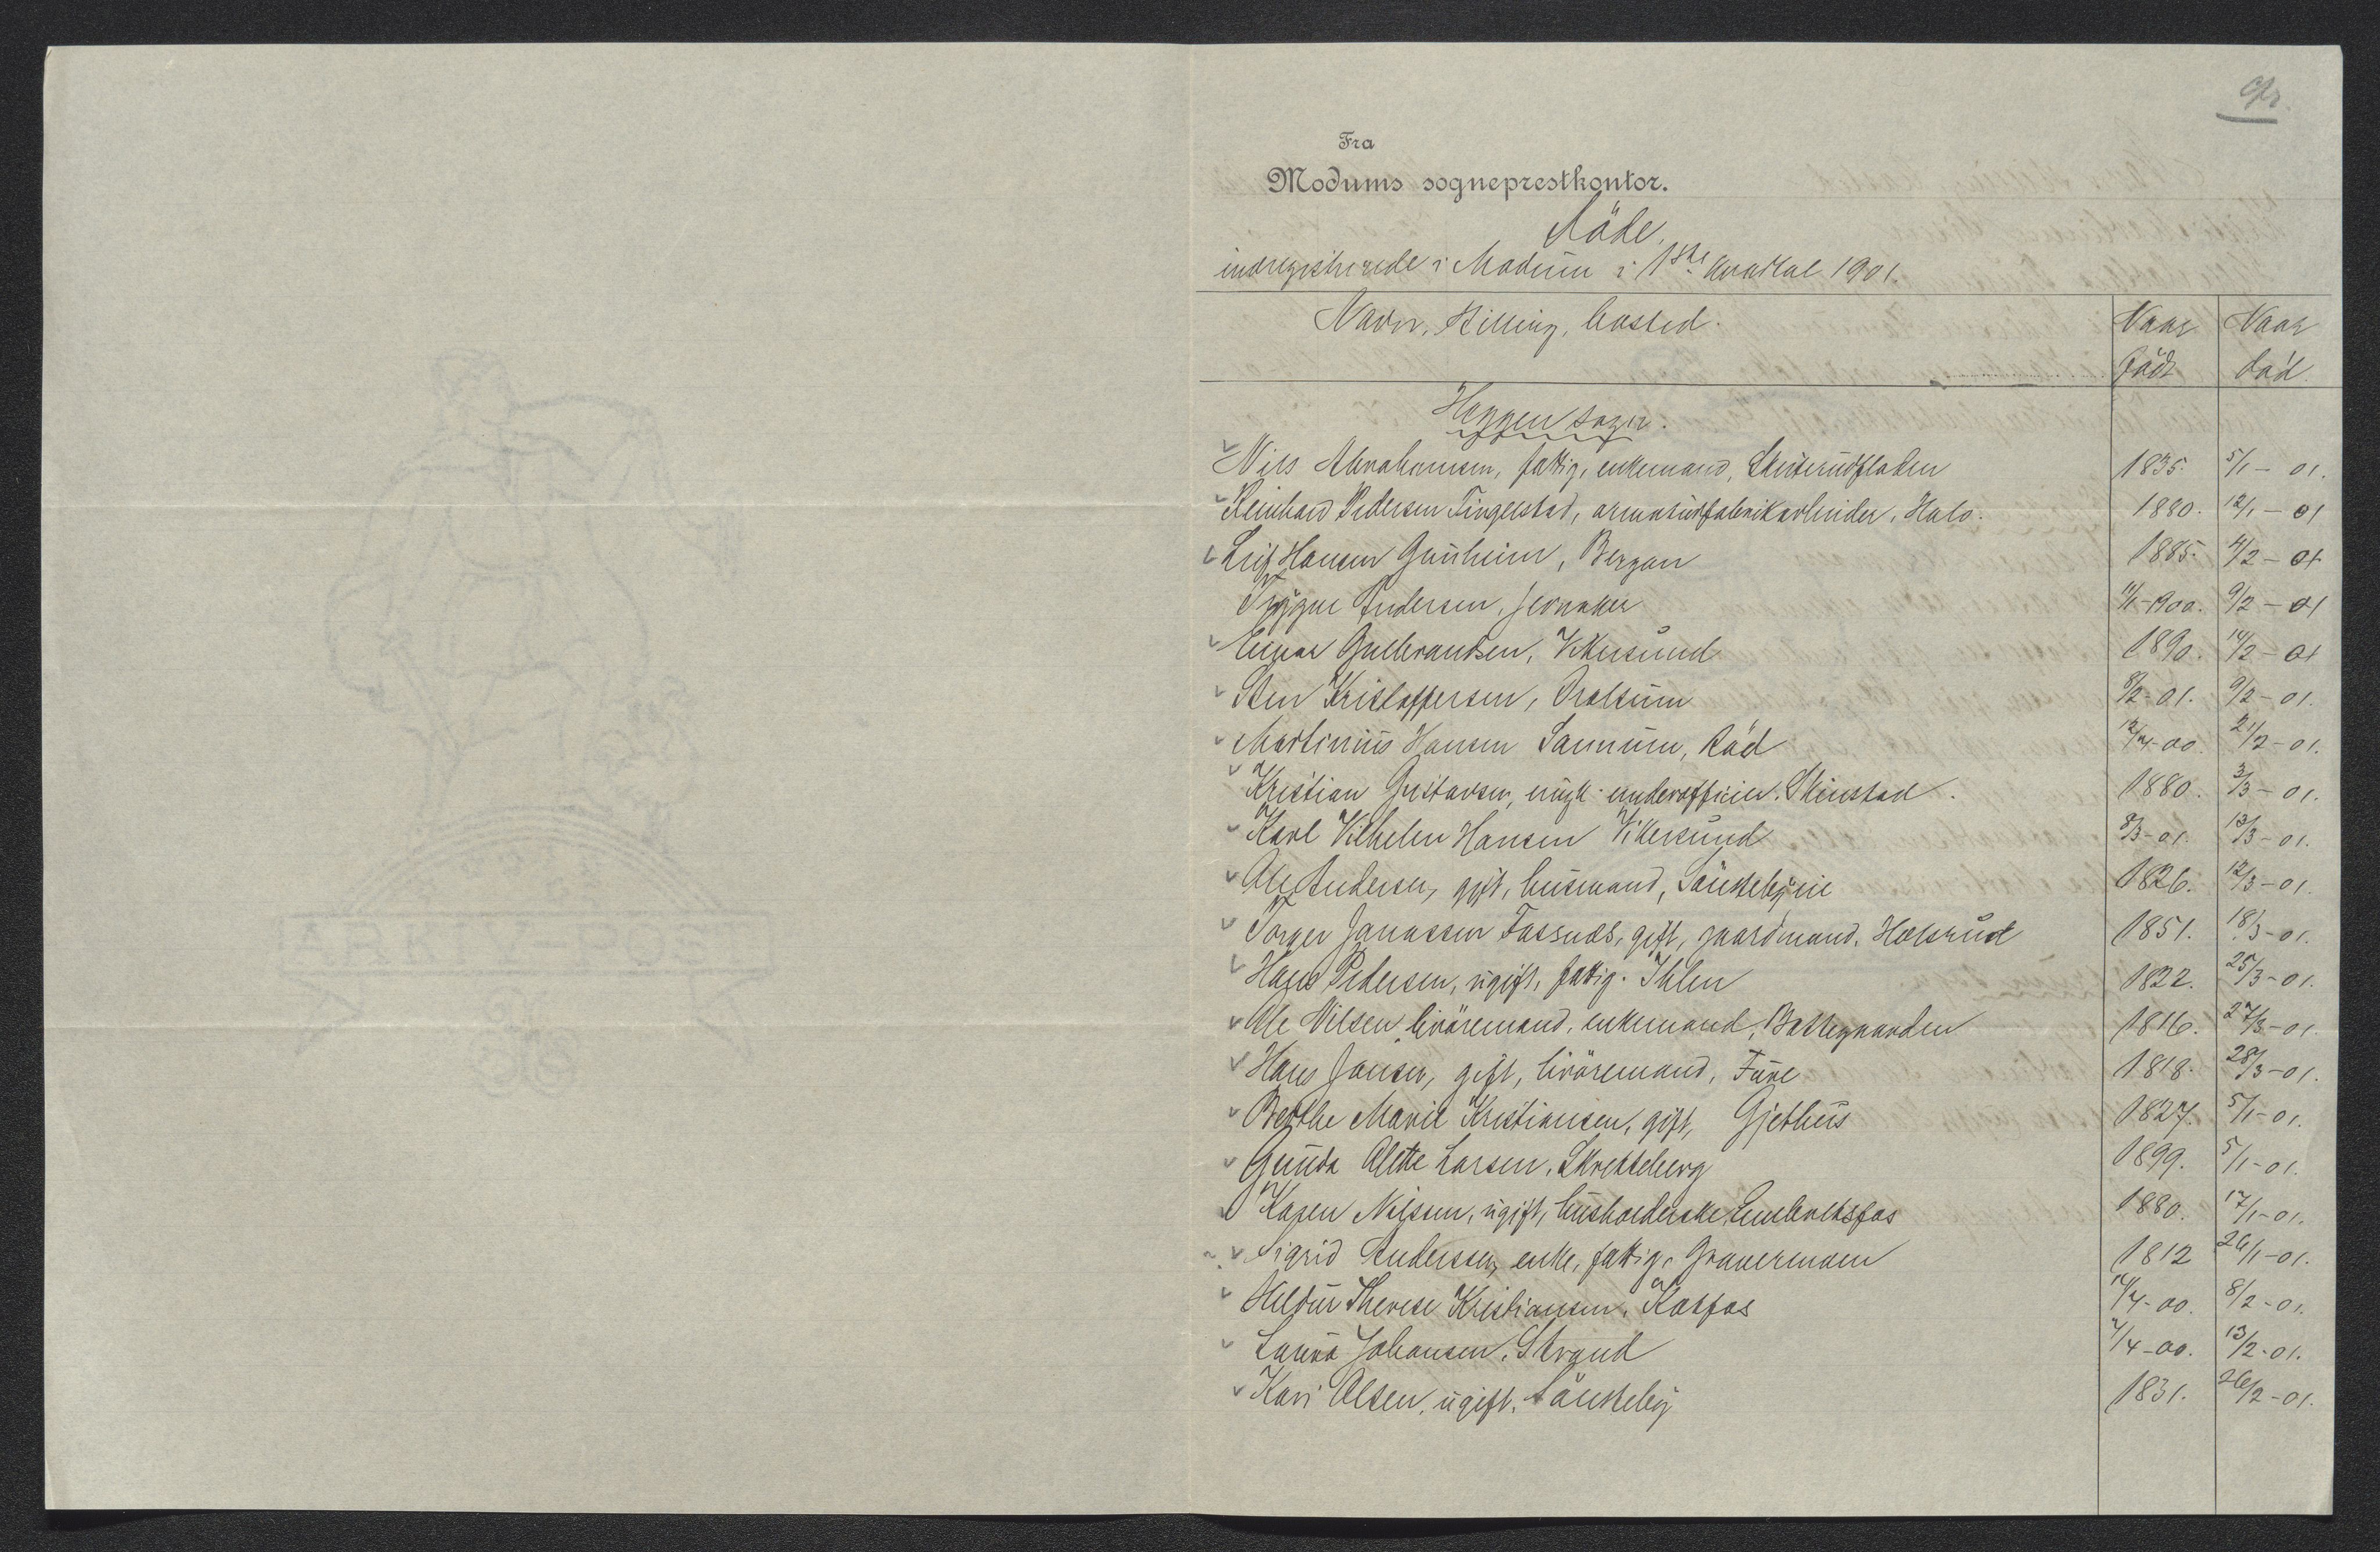 Fra
Modums sogneprestkontor.
Döde
indregistrerede i Modum i 1ste kvartal 1901.
Navn, Stilling, bosted. Naar Naar
född död
Heggen sogn.
Nils Abrahamsen, fattig, enkemand, 1835. 5/1 - 01.
Reinhard Pedersen Tingelstad, Halo. 1880. 12/1 - 01
Leif Hansen Gunheim, Bergan 1885. 4/2 - 01
Trygve Andersen, 11/1-1900. 9/2 - 01
Einar Gulbrandsen, Vikersund 1890. 14/2 - 01
Sten Kristoffersen, Drolsum 8/2-01. 9/2-01.
Martinius Hansen Sannum, Råd 12/4-00. 21/2-01.
Kristian Gustavsen, ungk. underofficier. Skinstad. 1880. 3/3-01.
Karl Vilhelm Hansen Vikersund 8/3-01. 13/3-01.
Ole Andersen, gift, husmand, 1826. 12/3-01.
Torger Jonassen Fossnæs, gift, gaardmand. Holsrud 1851. 18/3-01.
Hans Pedersen, ugift, fattig. Ihlen 1822. 25/3-01.
Ole Nilsen, livöremand, enkemand, Battegaarden 1816. 27/3-01.
Hans Jansen, gift, livöremand, Fure 1818. 28/3-01.
Berthe Marie Kristiansen, gift, Gjethus 1827. 5/1-01.
Gunda Alette Larsen, Skretteberg 1899. 5/1-01.
Karen Nilsen, ugift, husholderske, Embretsfos 1880. 17/1-01.
Sigrid Andersen, enke, fattig, 1812 26/1-01.
Hildur Therese Kristiansen, Katfos 14/4-00. 8/2-01.
Laura Johansen. Strand 7/4-00. 13/2-01.
Kari Olsen, ugift. 1831. 26/2-01.